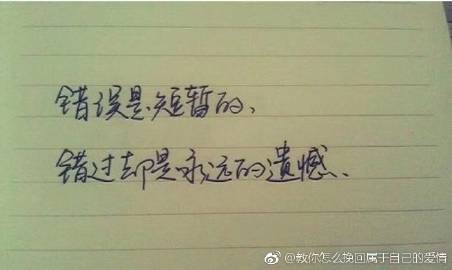 错误是短暂的、
错过却是永远的遗憾、
@教你怎么挽回属于自己的爱情